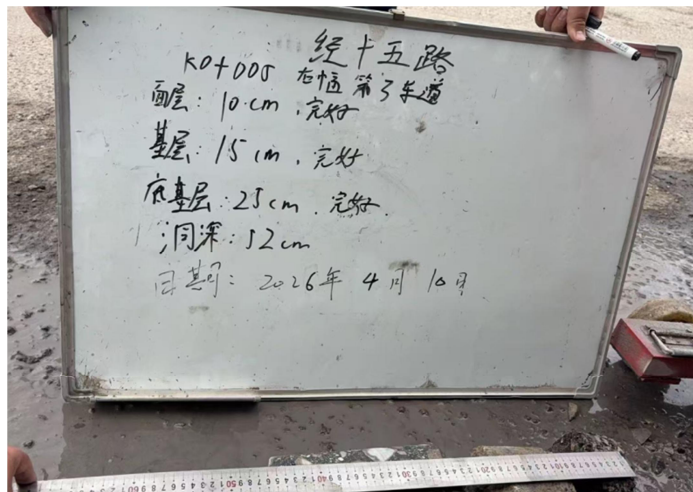 经十五路
K0+005 右幅 第3车道
面层：10cm，完好
基层：15cm，完好
底基层：25cm，完好.
洞深：52cm
日期：2026年4月10日